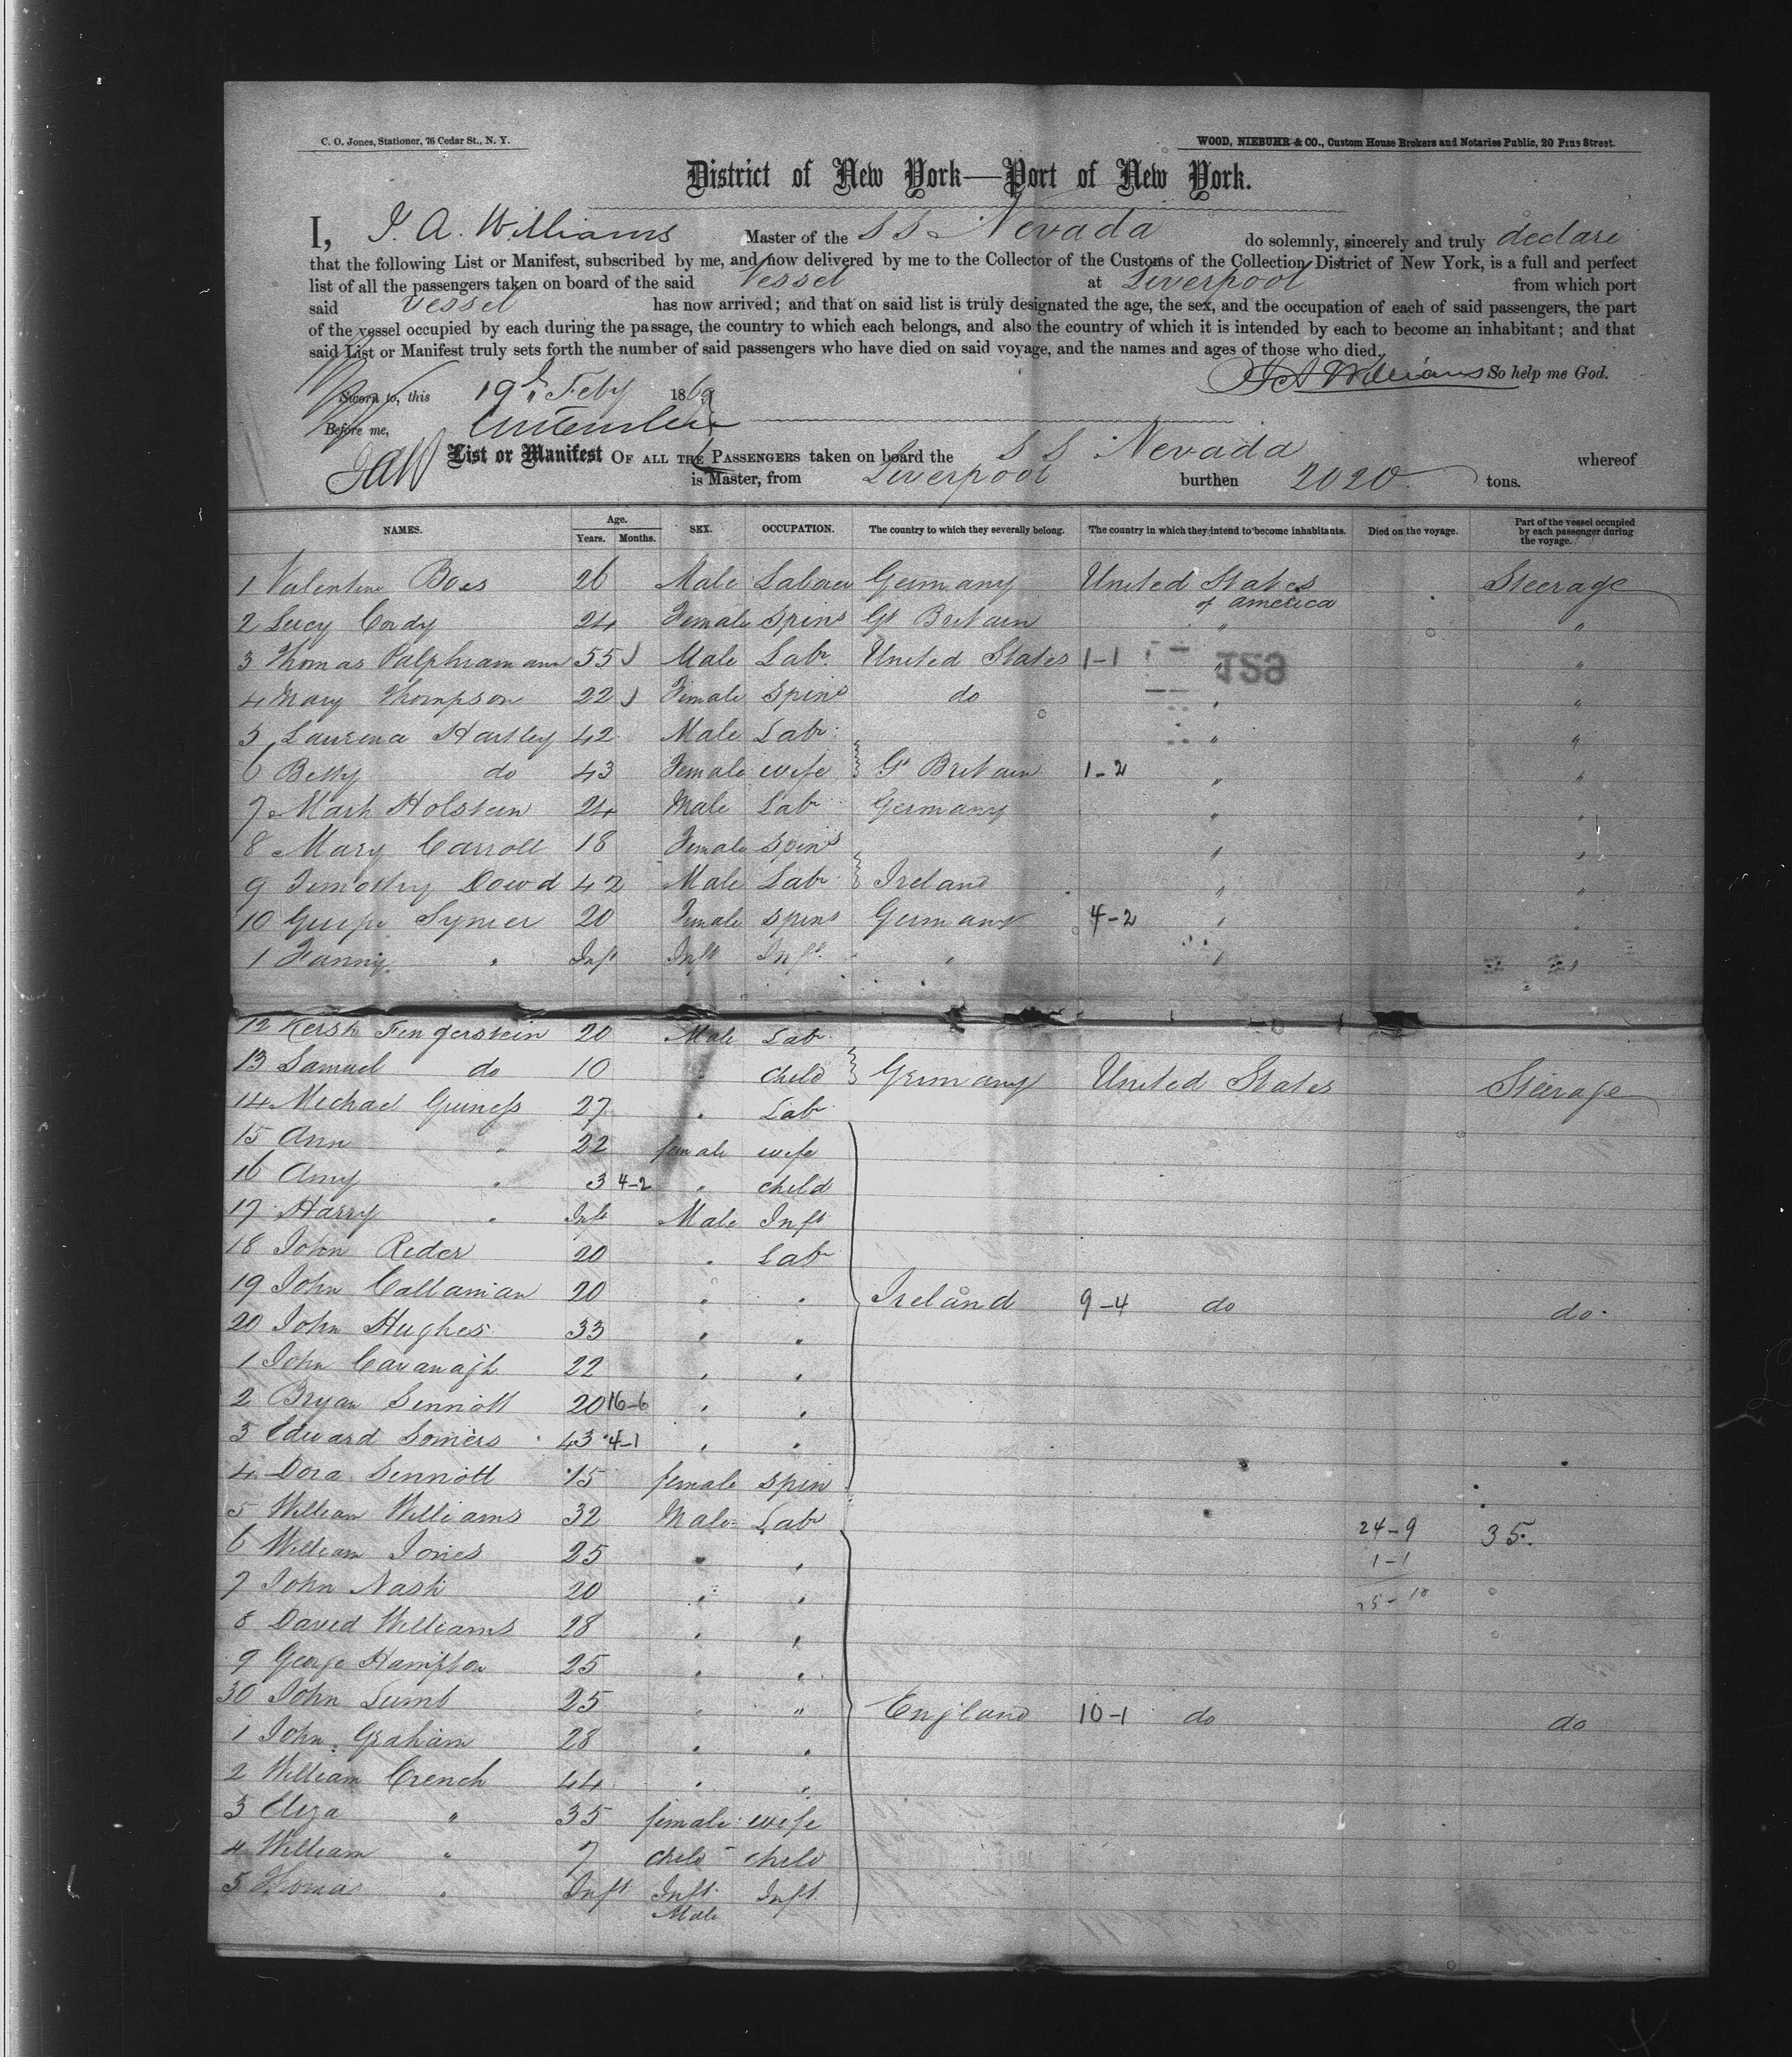 C. O. Jones, Stationer, 76 Cedar St., N. Y.
WOOD, NIEBUHR & CO., Custom House Brokers and Notaries Public, 20 Pine Street.
District of New York—Port of New York.
I, J. A. Williams Master of the S S Nevada do solemnly, sincerely and truly declare
that the following List or Manifest, subscribed by me, and now delivered by me to the Collector of the Customs of the Collection District of New York, is a full and perfect
list of all the passengers taken on board of the said Vessel at Liverpool from which port
said Vessel has now arrived; and that on said list is truly designated the age, the sex, and the occupation of each of said passengers, the part
of the vessel occupied by each during the passage, the country to which each belongs, and also the country of which it is intended by each to become an inhabitant; and that
said List or Manifest truly sets forth the number of said passengers who have died on said voyage, and the names and ages of those who died.
J A Williams So help me God.
Sworn to, this 19th Feby 1869
Before me,
JAW List or Manifest OF ALL THE PASSENGERS taken on board the S S Nevada whereof
is Master, from Liverpool burthen 2020 tons.
NAMES. Age. Years. Months. SEX. OCCUPATION. The country to which they severally belong. The country in which they intend to become inhabitants. Died on the voyage. Part of the vessel occupied by each passenger during the voyage.
1 Valentine Boes 26 Male Laborer Germany United States of America Steerage
2 Lucy Cordy 24 Female Spins Gt Britain " "
3 Thomas Palphramann 55 Male Lab. United States 1-1 " "
4 Mary Thompson 22 Female Spins do " "
5 Laurence Hartley 42 Male Lab. " "
6 Betty do 43 Female wife Gt Britain 1-2 " "
7 Mark Holstein 24 Male Lab Germany " "
8 Mary Carroll 18 Female Spins " "
9 Timothy Dowd 42 Male Lab Ireland " "
10 Syner 20 Female Spins Germany 4-2 " "
1 Fanny " Inft Inft Inft " " "
12 Hersh Fingerstein 20 Male Lab
13 Samuel do 10 " Child Germany United States Steerage
14 Michael Guiness 27 " Lab
15 Ann " 22 female wife
16 Amy " 3 4-2 " child
17 Harry " Inft Male Inft
18 John Reder 20 " Lab
19 John Callanian 20 " " Ireland 9-4 do do
20 John Hughes 33 " "
1 John Cavanagh 22 " "
2 Bryan Sennott 20 16-6 " "
3 Edward Somers 43 4-1 " "
4 Dora Sennott 15 female spin
5 William Williams 32 Male Lab 24-9 35.
6 William Jones 25 " " 1-1
7 John Nash 20 " " 25-10
8 David Williams 28 " "
9 George Hampton 25 " "
30 John Lumb 25 " " England 10-1 do do
1 John Graham 28 " "
2 William Crench 44 " "
3 Eliza " 35 female wife
4 William " 7 child child
5 Thomas " Inft Inft Male Inft